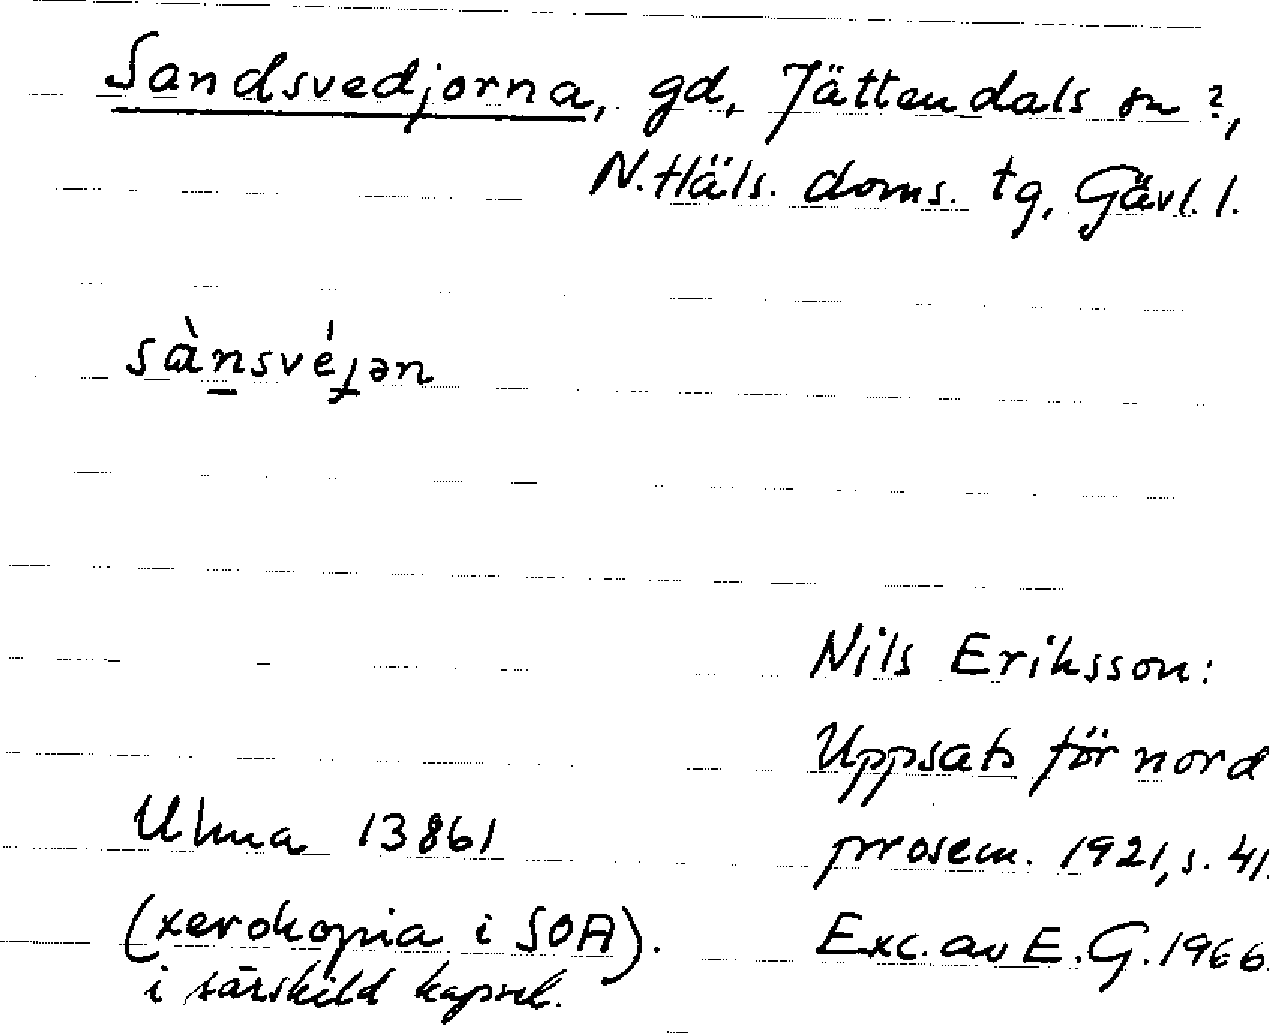 Sandsvedjorna, gd, Jättendals sn ?,
N. Häls. doms. tg, Gävl. l.
sànsvéɟən
Nils Eriksson:
Uppsats för nord
prosem. 1921, s. 41.
Ulma 13861
(xerokopia i SOA).
i särskild kapsel.
Exc. av E. G. 1966.